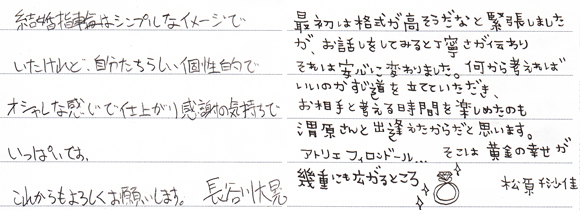 結婚指輪はシンプルなイメージで
いたけれど、自分たちらしい個性的で
オシャレな感じで仕上がり感謝の気持ちで
いっぱいです。
これからもよろしくお願いします。 長谷川大晃
最初は格式が高そうだなと緊張しました
が、お話しをしてみると丁寧さが伝わり
それは安心に変わりました。何から考えれば
いいのかすぎ道を立てていただき、
お相手と考える時間を楽しめたのも
渭原さんと出逢えたからだと思います。
アトリエ フィロンドール... そこは 黄金の幸せが
幾重にも広がるところ
松原
佳